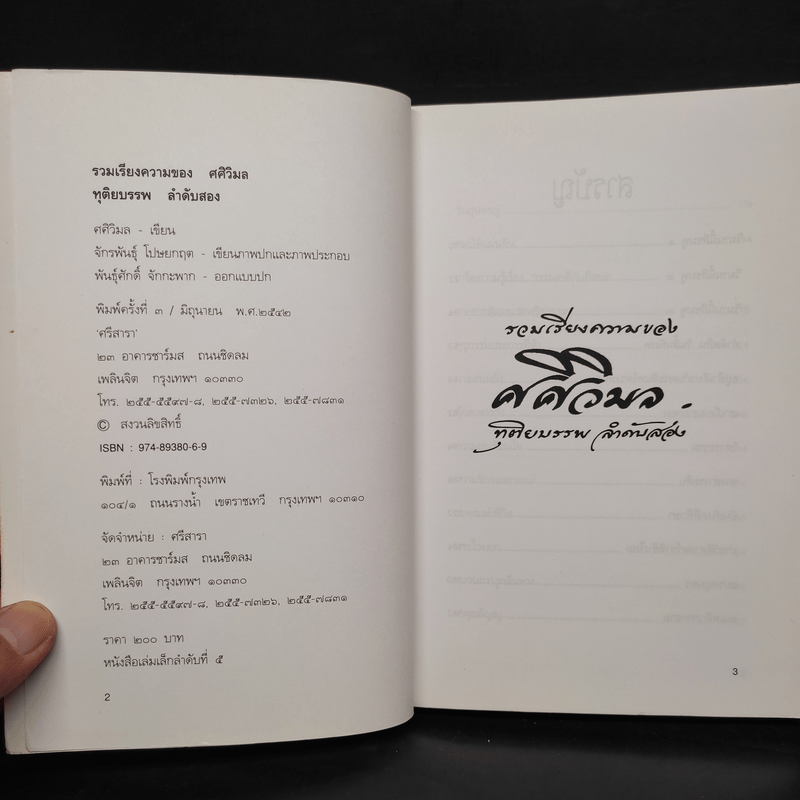 รวมเรียงความของ ศศิวิมล
ทุติยบรรพ ลำดับสอง
ศศิวิมล - เขียน
จักรพันธุ์ โปษยกฤต - เขียนภาพปกและภาพประกอบ
พันธุ์ศักดิ์ จักกะพาก - ออกแบบปก
พิมพ์ครั้งที่ ๓ / มิถุนายน พ.ศ.๒๕๔๒
'ศรีสารา'
๒๓ อาคารชาร์มส ถนนชิดลม
เพลินจิต กรุงเทพฯ ๑๐๓๓๐
โทร. ๒๕๕-๕๕๙๗-๘, ๒๕๕-๗๓๒๖, ๒๕๕-๗๘๓๑
© สงวนลิขสิทธิ์
ISBN : 974-89380-6-9
พิมพ์ที่ : โรงพิมพ์กรุงเทพ
๑๐๔/๑ ถนนรางน้ำ เขตราชเทวี กรุงเทพฯ ๑๐๓๑๐
จัดจำหน่าย : ศรีสารา
๒๓ อาคารชาร์มส ถนนชิดลม
เพลินจิต กรุงเทพฯ ๑๐๓๓๐
โทร. ๒๕๕-๕๕๙๗-๘, ๒๕๕-๗๓๒๖, ๒๕๕-๗๘๓๑
ราคา ๒๐๐ บาท
หนังสือเล่มเล็กลำดับที่ ๕
2
รวมเรียงความของ
ศศิวิมล.
ทุติยบรรพ ลำดับสอง
3